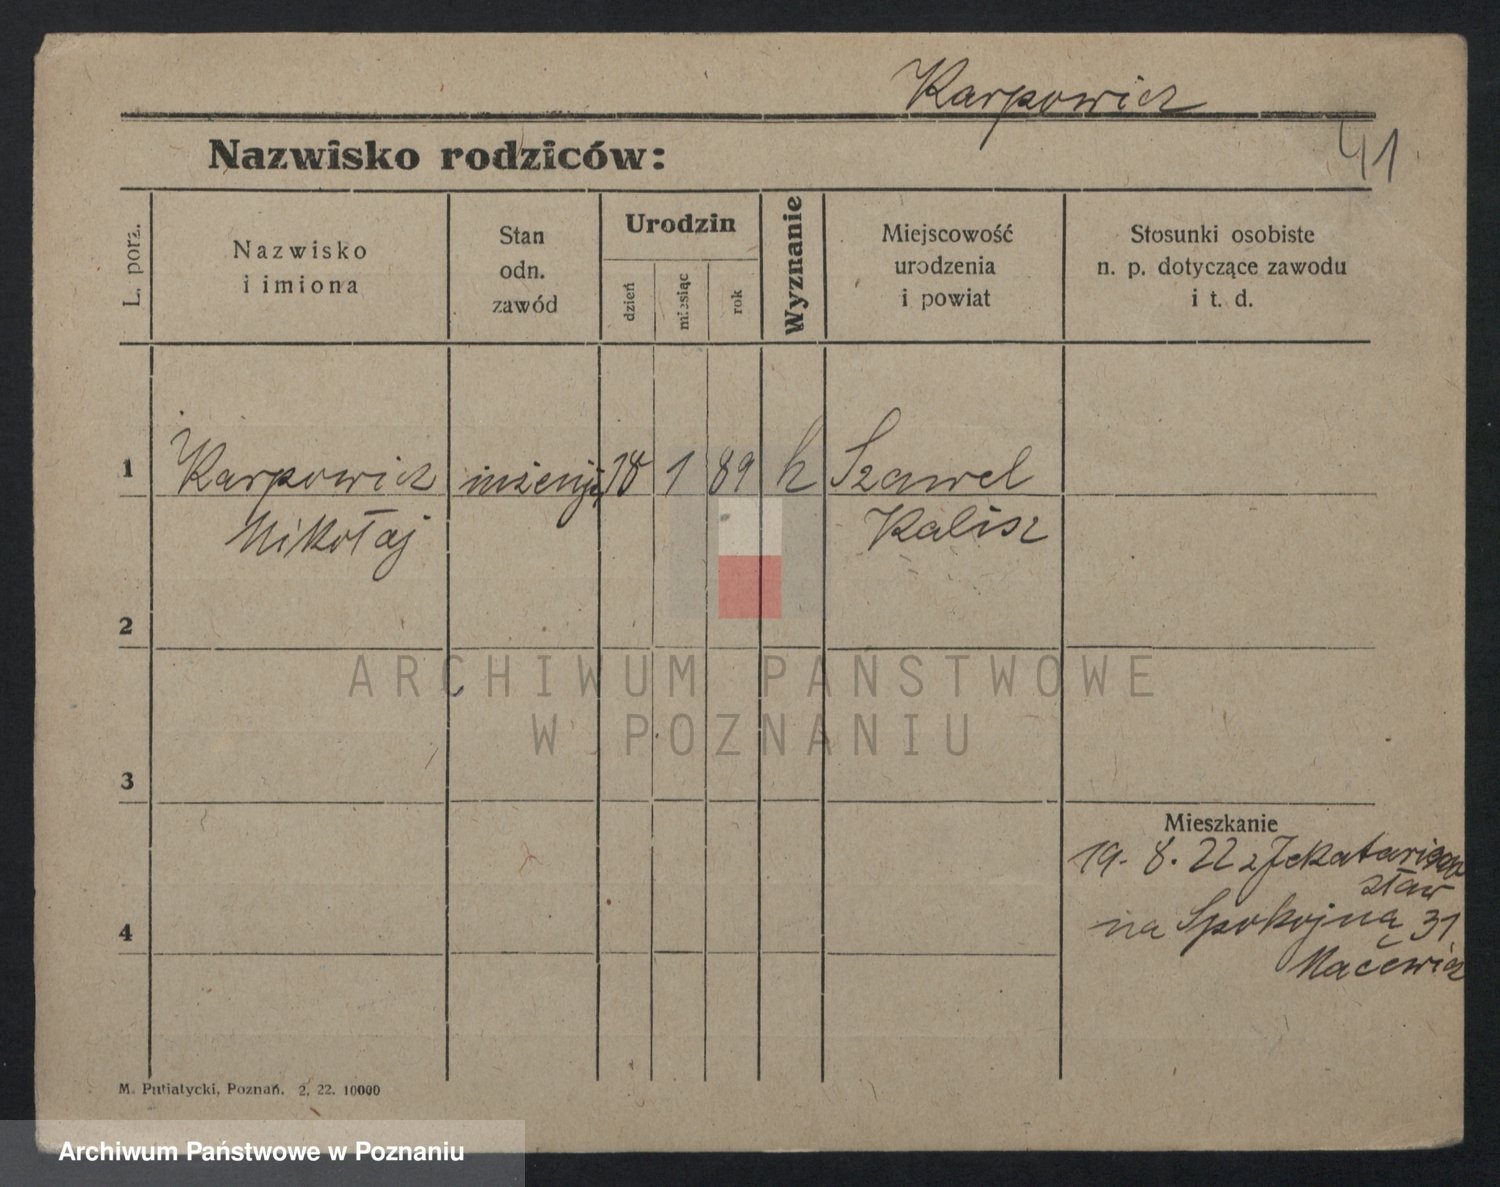 Karpowicz
41
Nazwisko rodziców:
L. porz.
Nazwisko
i imiona
Stan
odn.
zawód
Urodzin
dzień
miesiąc
rok
Wyznanie
Miejscowość
urodzenia
i powiat
Stosunki osobiste
n. p. dotyczące zawodu
i t. d.
1
Karpowicz
Mikołaj
18
1
89
k
Szawel
Kalisz
2
ARCHIWUM PAŃSTWOWE
W POZNANIU
3
Mieszkanie
19. 8. 22 z Jekatarino
sław
na Spokojną 31
Macewicz
4
M. Putiatycki, Poznań. 2. 22. 10000
Archiwum Państwowe w Poznaniu